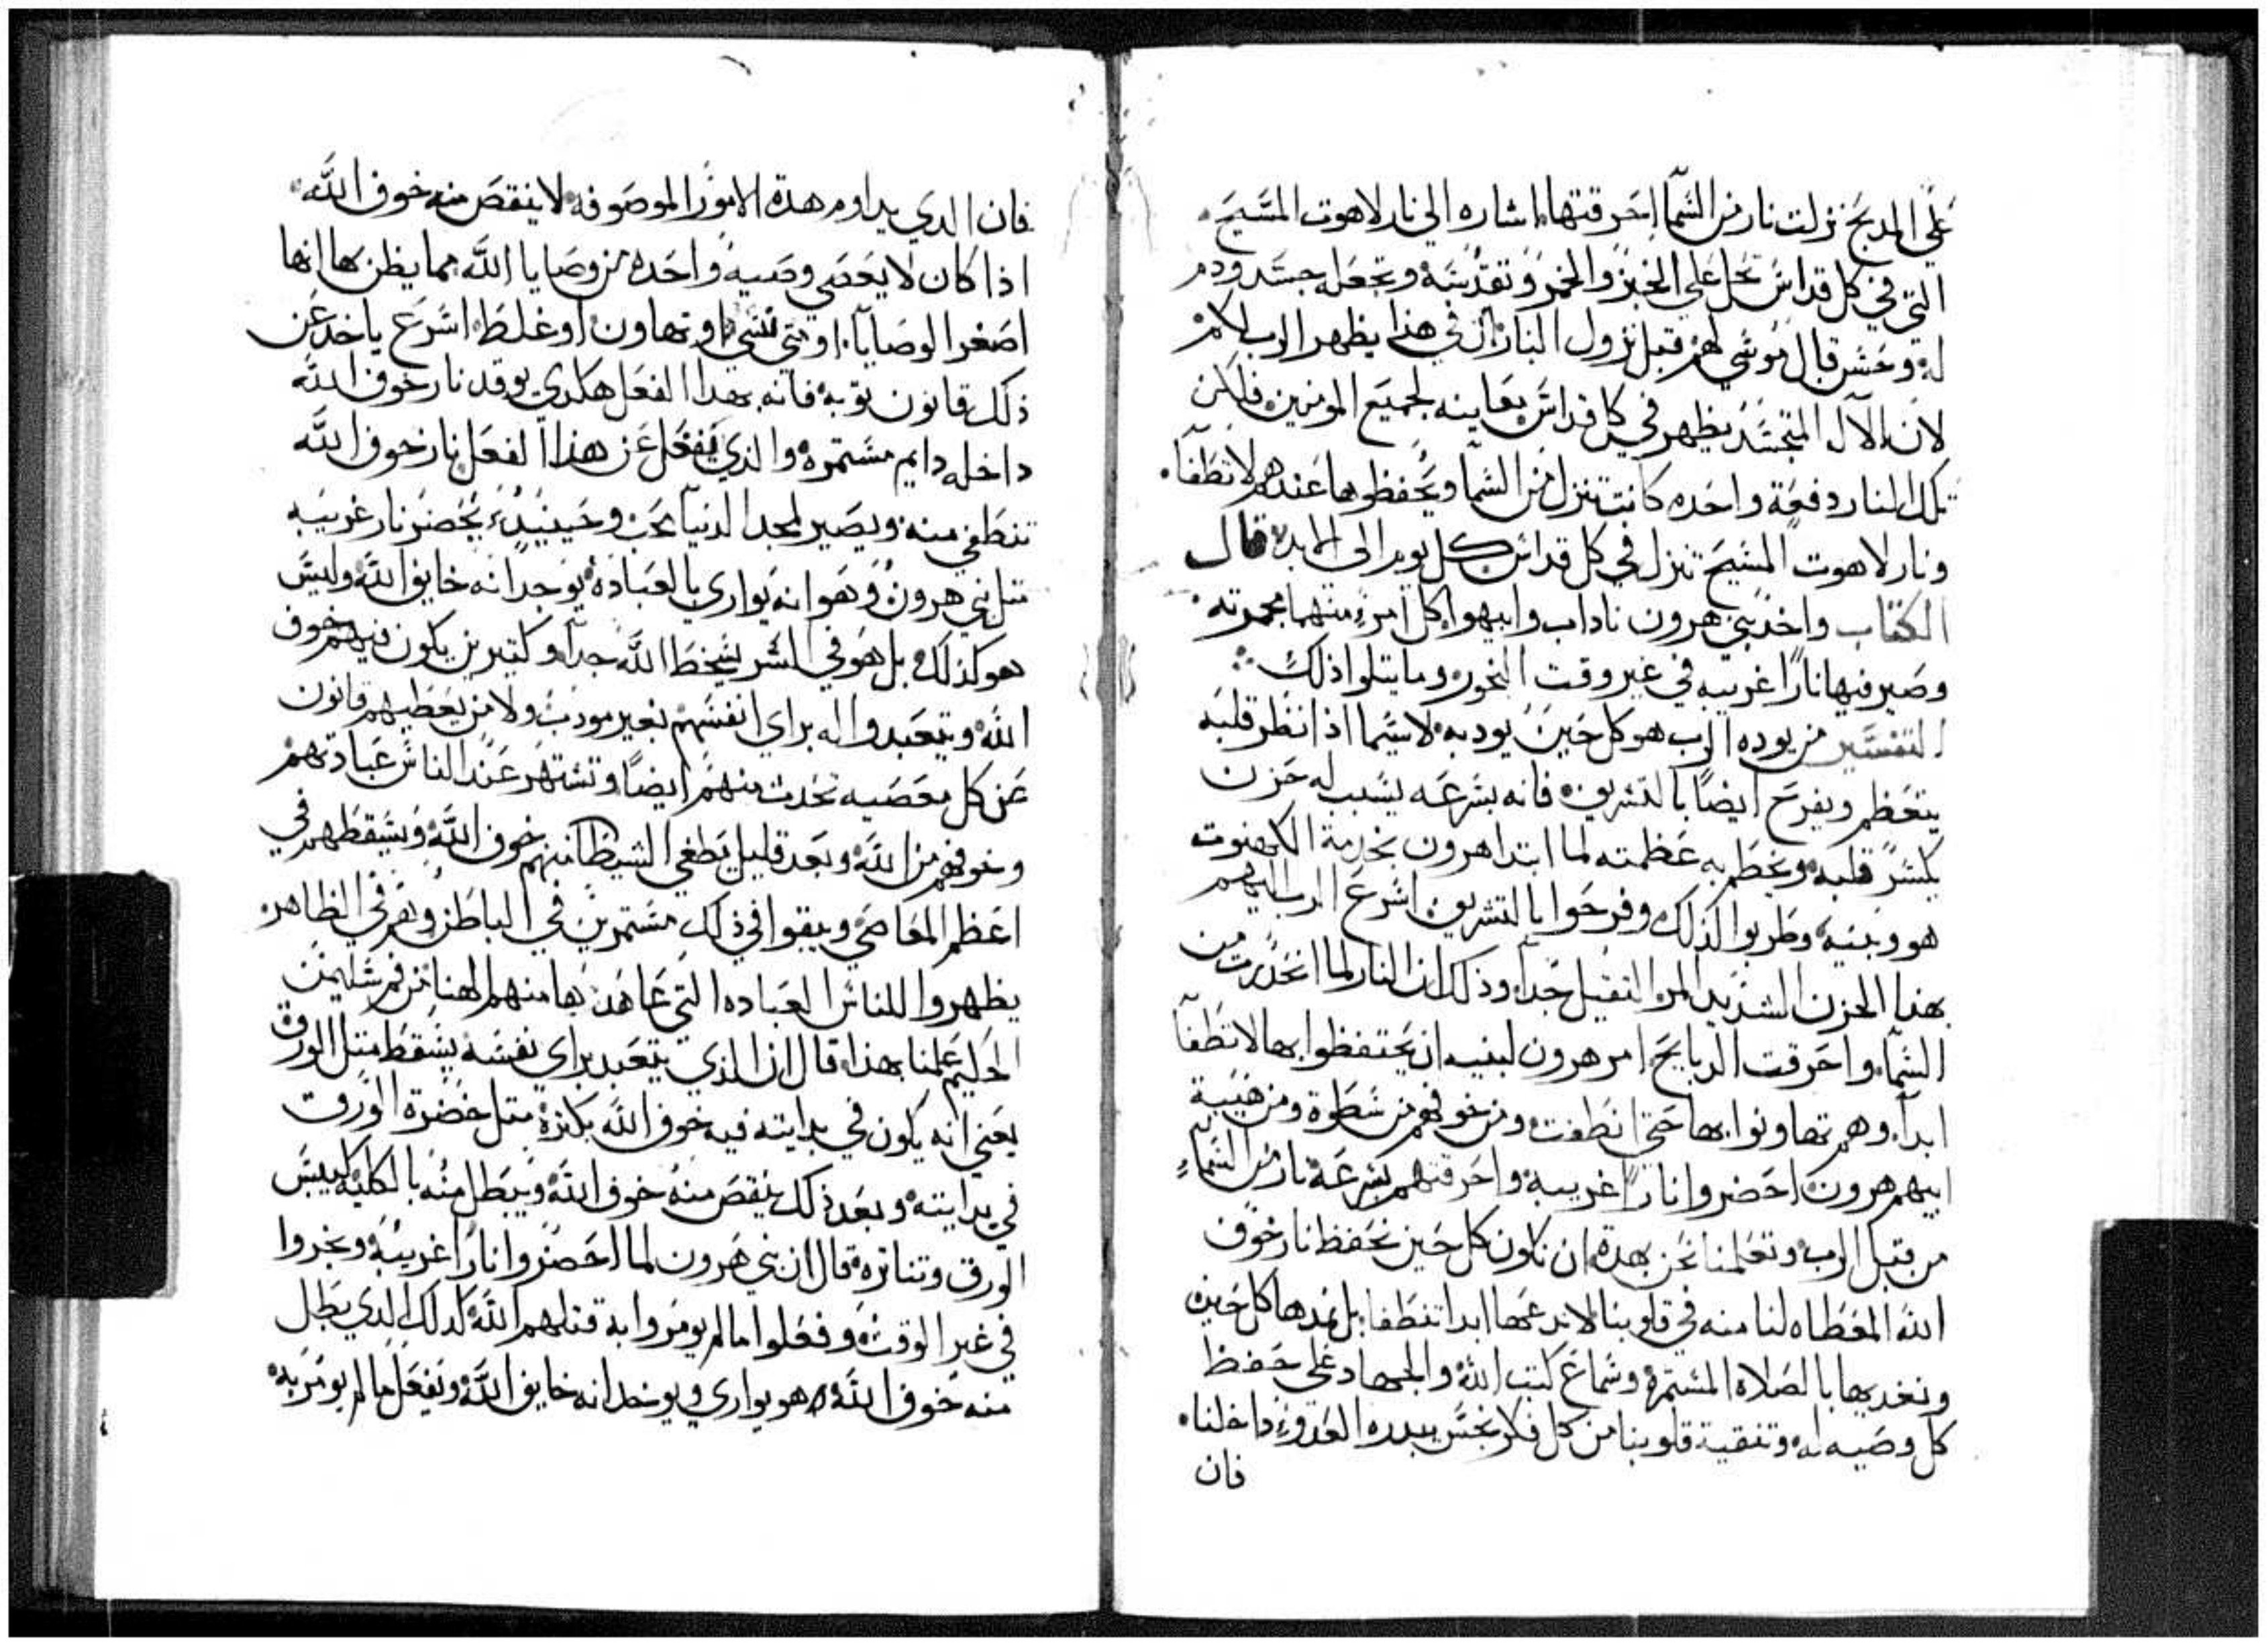 علي المدبح نزلت نار من السما احرقتها اشاره الي نار لاهوت المسيح
التي في كل قداس تحل علي الخبز والخمر وتقدسه وتجعله جسد ودم
له وحسن قال موسي لهم قبل نزول النار ان في هذا يظهر الرب لكم
لان الاله المتجسد يظهر في كل قداس بعاينه لجميع المومنين فلكن
تلك النار دفعة واحده كانت تنزل من السما ويحفظوها عندهم لا تطفا
ونار لاهوت المسيح تنزل في كل قداس كل يوم الي الابد قال
الكتاب واخذ بني هرون ناداب وابيهوا كل امرء منهما مجمرته
وصير فيها نارًا غريبه في غير وقت البخور وما يتلوا ذلك
التفسير من يوده الرب هو كل حين يودبه لا سيما اذا نظر قلبه
يتعظم ويفرح ايضًا بالتشريف فانه بسرعه يسبب له حزن
يكسر قلبه ويحطم به عظمته لما ابتدا هرون بخدمة الكهنوت
هو وبنيه وطربوا لذلك وفرحوا بالتشريف اسرع الرب اليهم
بهذا الحزن الشديد المر الثقيل جدًا وذلك ان النار لما انحدرت من
السما واحرقت الدبايح امر هرون لبنيه ان يحتفظوا بها لا تطفا
ابدًا وهم تهاونوا بها حتي انطفت ومن خوفهم من سطوة ومن هيبة
ابيهم هرون احضروا نارًا غريبه واحرقتهم بسرعة نار من السماء
من قبل الرب وتعلمنا نحن بهدة ان نكون كل حين نحفظ نار خوف
الله المعطاه لنا منه في قلوبنا لا ندعها ابدا تنطفا بل نمدها كل حين
ونغديها بالصلاه المستمرة وسماع كتب الله والجهاد علي حفظ
كل وصيه له وتنقية قلوبنا من كل فكر نجس يبدره العدو داخلنا
فان
فان الدي يداوم هدة الامور الموصوفه لا ينقص منه خوف الله
اذا كان لا يعصي وصيه واحده من وصايا الله مما يظن بها انها
اصغر الوصايا او متي نسي او تهاون او غلط اسرع ياخد عن
ذلك قانون توبه فانه بهدا الفعل هكدي يوقد نار خوف الله
داخله دايم مستمره والذي يغفل عن هذا الفعل نار خوف الله
تنطفي منه ويصير لمجد الدنيا محب وحينيد يحضر نار غريبه
مثل بني هرون وهو انه يواري بالعباده يوجد انه خايف الله وليس
هو كذلك بل هو في السر يسخط الله جدًا وكتيرين يكون فيهم خوف
الله ويتعبدوا له براي انفسهم بغير مودب ولا من يعطيهم قانون
عن كل معصيه تحدت منهم ايضًا وتشتهر عند الناس عبادتهم
وخوفهم من الله وبعد قليل يطفي الشيطان منهم خوف الله ويسقطهم في
اعظم المعاصي ويبقوا في ذلك مستمرين في الباطن وهم في الظاهر
يظهروا للناس العباده التي عاهدت بها منهم الهنا من فم سليمن
الحكيم علمنا بهذا قال ان الذي يتعبد براي نفسه يسقط متل الورق
يعني انه يكون في بدايته فيه خوف الله بكثرة متل خضرة الورق
في بدايته وبعد ذلك ينقص منه خوف الله ويبطل منه بالكليه كيبس
الورق وتناثره قال ان بني هرون لما احضروا نارًا غريبه وبخروا
في غير الوقت وفعلوا ما لم يومروا به قتلهم الله كدلك الدي يطل
منه خوف الله وهو يواري ويوخد انه خايف الله ويفعل ما لم يومر به